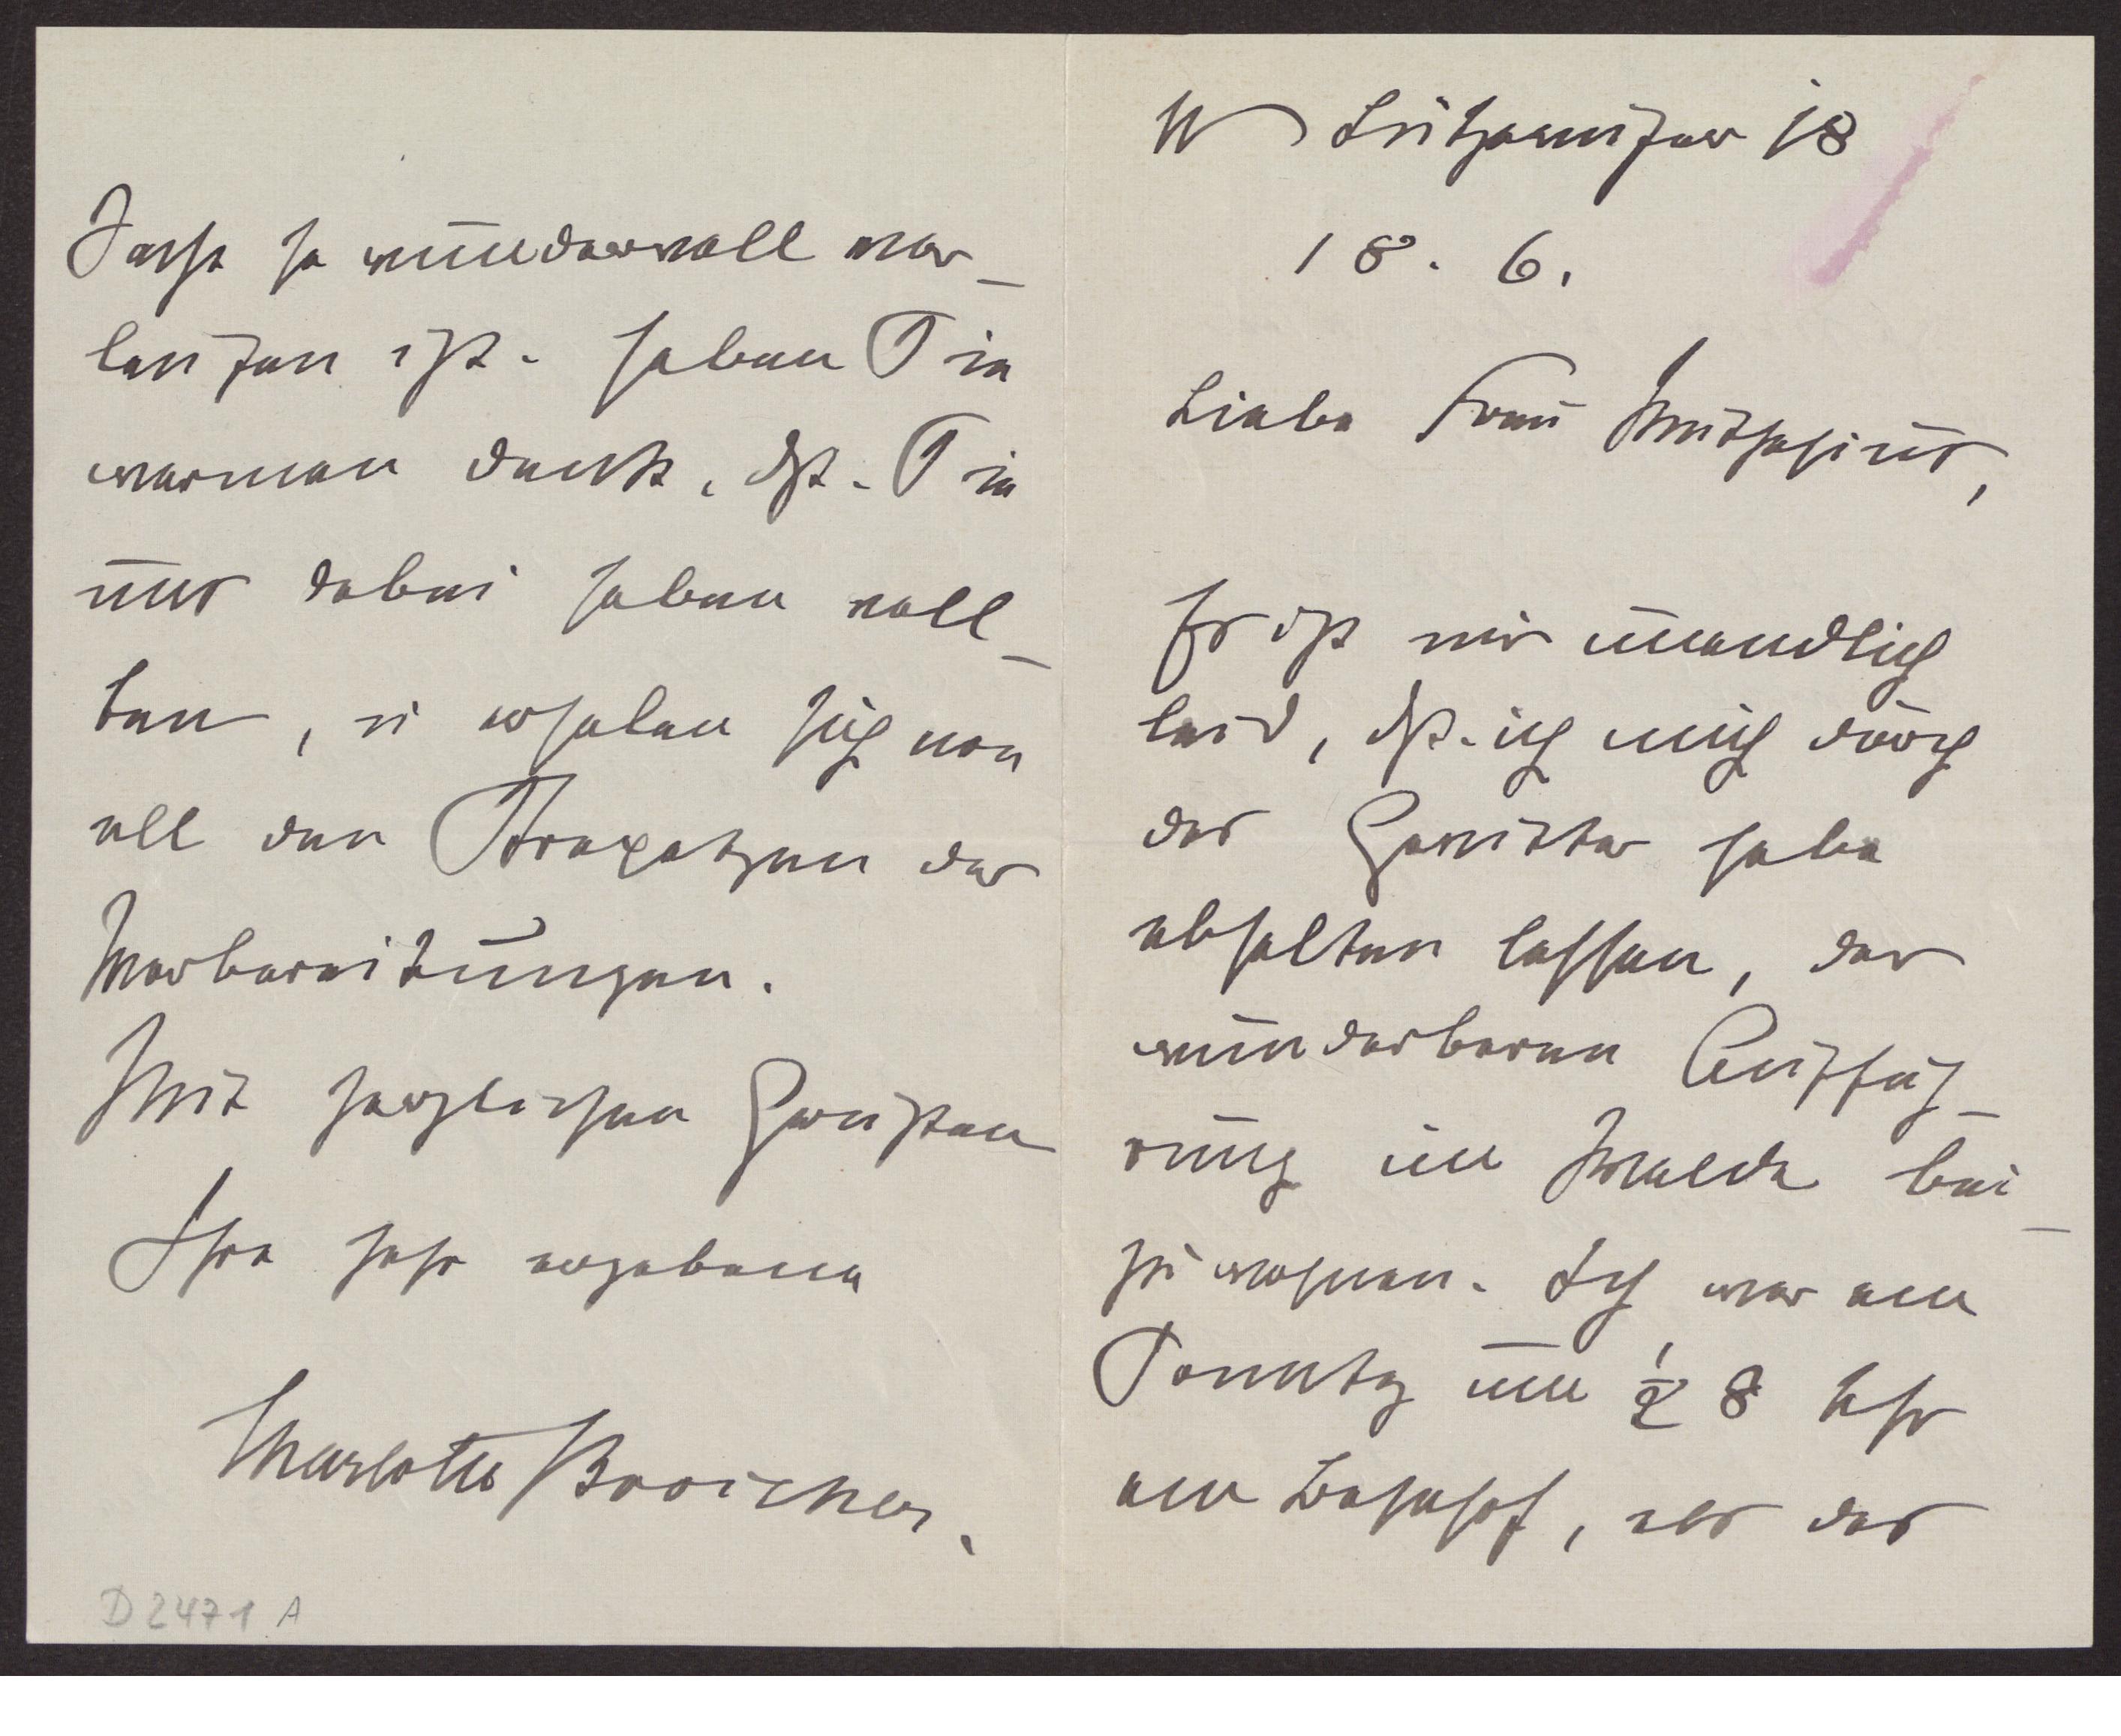 W Lützowufer 18
18. 6.
Liebe Frau Muthesius,
Es ist mir unendlich
leid, dß. ich mich durch
das Gewitter habe
abhalten lassen, der
wunderbaren Auffüh-
rung im Walde bei-
zuwohnen. Ich war am
Sonntag um ½ 8 Uhr
am Bahnhof, als das
Sache so wundervoll ver-
laufen ist. Haben Sie
warmen Dank, dß. Sie
uns dabei haben woll-
ten, u erholen sich von
all den Strapatzen der
Vorbereitungen.
Mit herzlichen Grüßen
Ihre sehr ergebene
Charlotte Broicher.
D 2471 A